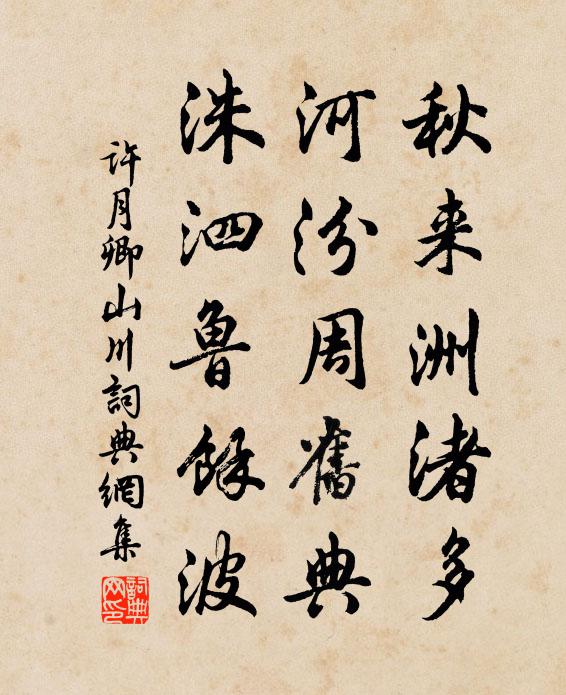 秋来洲渚多
河汾周舊典
洙泗魯餘波
许月卿山川詞典網集
詞典网印